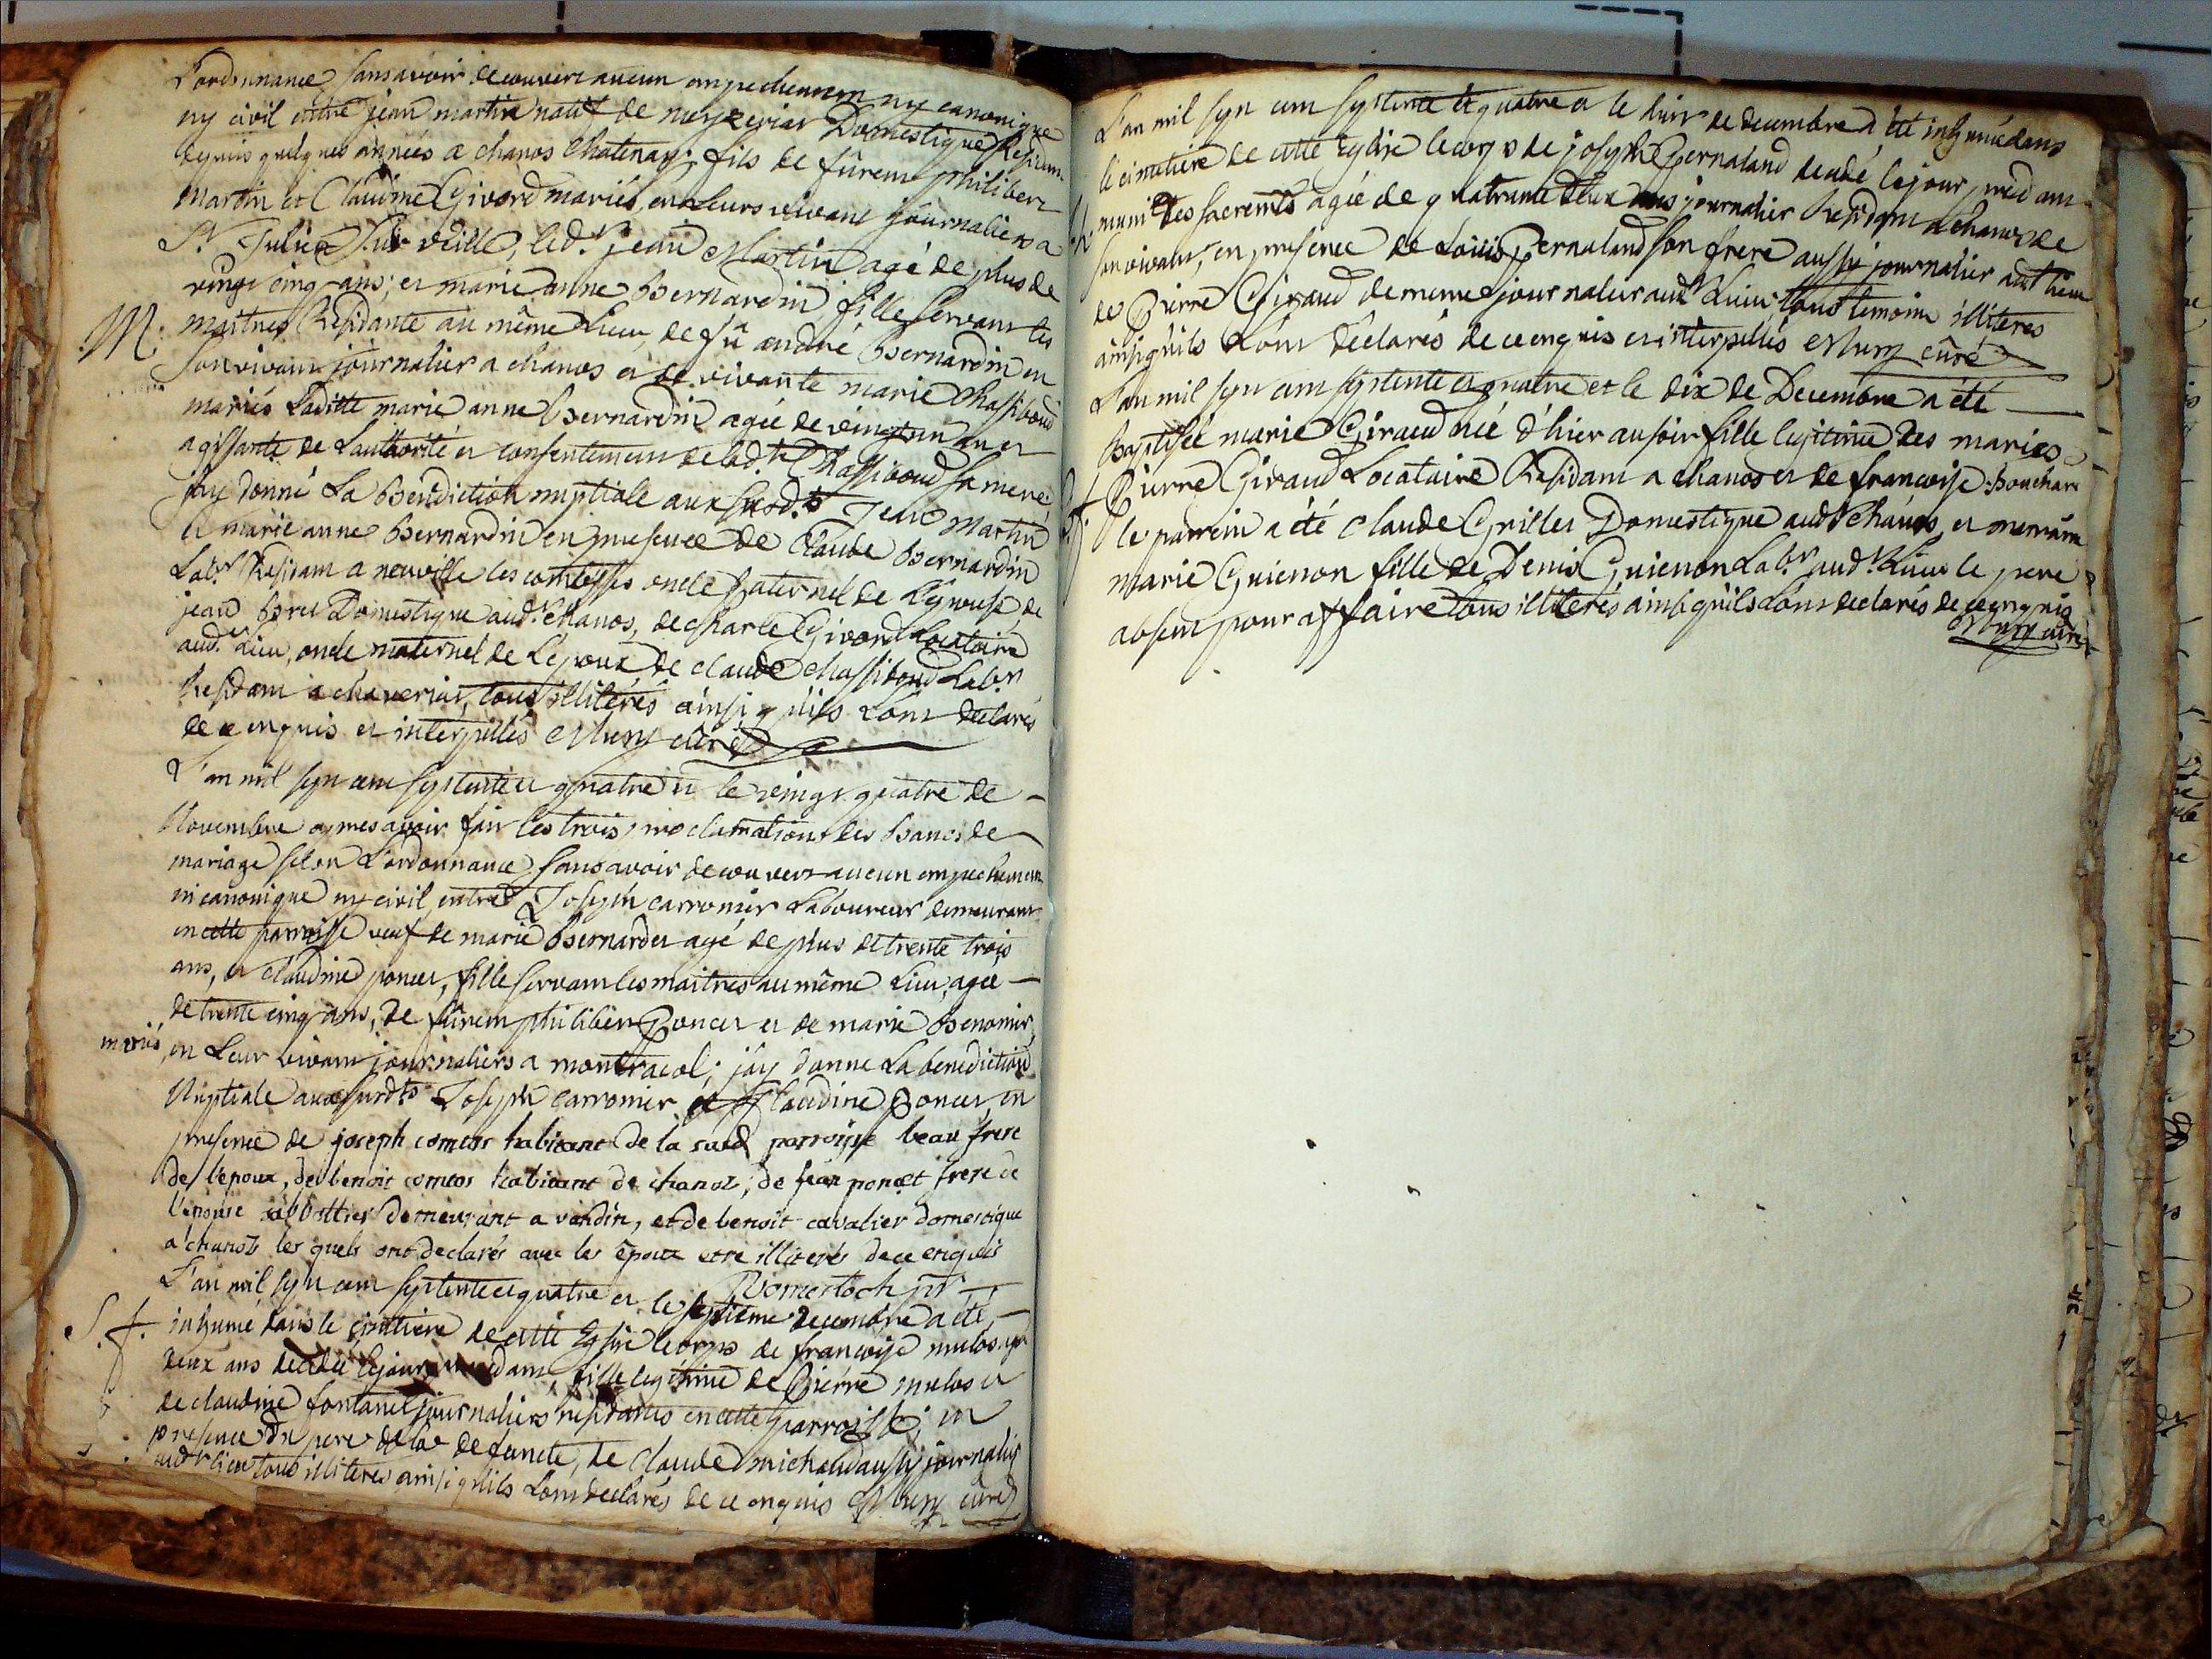 L'ordonnance sans avoir decouvert aucun empechement ny canonique
ny civil entre jean martin natif de meyzeriat Domestique Resident
depuis quelques années a chanos Chatenay; fils de fûrent philibert
Martin et Claudine Givord mariés, en leurs vivant journaliers a
St. Julien sur veille, led.t jean Martin agé de plus de
vingt cinq ans; et marie anne Bernardin fille servant les
M. maitres Residante au même Lieu, de fû andré Bernardin en
son vivant journalier a chanos et de vivante marie Chassiboud
mariés Laditte marie anne Bernardin agée de vingt un an et
agissante de Lauthorité et consentement de lad.te Chassiboud sa mere;
jay donné La Benediction nuptiale aux susd.ts Jean Martin
et marie anne Bernardin en presence de Claude Bernardin
Lab.r Residant a neuville les comtesses oncle paternel de L'epouse, de
jean Bret Domestique aud.t Chanos, de charle Givord Locataire
aud.t Lieu, oncle maternel de L'epoux de claude Chassiboud Lab.r
Residant a chaveriat, tous illiterés ainsi qu'ils L'ont declarés
de ce enquis et interpellés Mury curé
L'an mil sept cent septente et quatre et le vingt quatre de
Novembre apres avoir fait les trois proclamations des Bancs de
mariage selon L'ordonnance sans avoir decouvert aucun empechement
ni canonique ny civil entre Joseph carronier Laboureur demeurant
en cette parroisse veuf de marie Bernardet agé de plus de trente trois
ans, et Claudine poncet, fille servant les maitres au même Lieu, agée
de trente cinq ans, de fûrent philibert Poncet et de marie Benonier
mariés, en Leur vivant journaliers a montracol; jay donné La benediction
Nuptiale aux susd.ts Joseph Carronier et Claudine Poncet, en
presence de joseph comtet habitant de la sued parroisse beau frere
de l'epoux, de benoit comtet habitant de chanoz, de jean poncet frere de
l'epouse demeurant a vandin, et de benoit cavalier domestique
a chanoz les quels ont declarés avec les epoux etre illiterés de ce enquis
L'an mil sept cent septente et quatre et le septieme decembre a été
S. f. inhumé dans le cimetiere de cette Eglise le corps de francoise mulos agée
deux ans decedée le jour precedant, fille legitime de Pierre mulos et
de claudine fontanel journaliers residants en cette parroisse; en
presence du pere de la defuncte, de Claude michaud aussy journalier
aud.t lieu tous illiteres ainsi qu'ils L'ont declarés de ce enquis Mury curé
L'an mil sept cent septente et quatre et le huit de decembre a été inhumé dans
le cimetiere de cette Eglise le corps de joseph Pernaland decedé le jour precedant
muni des sacrements agé de quatrante deux ans journalier residant a chanos de
son vivant, en presence de Loüis Pernaland son frere aussy journalier audt Lieu
de Pierre Giraud de meme journalier audt Lieu; tous temoins illiteres
ainsi qu'ils L'ont declarés de ce enquis et interpellés Mury curé
L'an mil sept cent septente et quatre et le dix de Decembre a été
Baptisée marie Giraud née d'hier au soir fille legitime des mariés
Pierre Giraud Locataire Residant a chanos et de francoise Bouchard
le parrein a été Claude Grillet Domestique audt Chanos, et marraine
marie Guienon fille de Denis Guienon Lab.r aud.t Lieu le pere
absent pour affaire tous illiterés ainsi qu'ils L'ont declarés de ce enquis
Mury curé